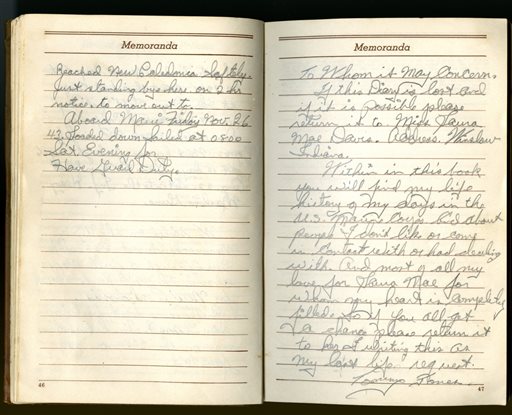 Memoranda
Reached New Caledonia Saftely.
Just standing by here on 2 hr
notice to move out to.
Aboard Maui Friday Nov. 26
42 loaded down Sailed at 0800
Sat. Evening for
Have Guard Duty.
46
Memoranda
To Whom it May Concern,
If this Diary is lost and
if it is possible please
return it to Miss Laura
Mae Davis. Address, Winslow
Indiana.
Within in this book
you will find my life
history of my days in the
U.S. Marine Corps and about
people I don't like or come
in contact with or had dealing
with. And most of all my
love for Laura Mae for
whom my heart is completely
filled. So if you all get
a chance please return it
to her. I writing this as
my last life request.
Jones.
47